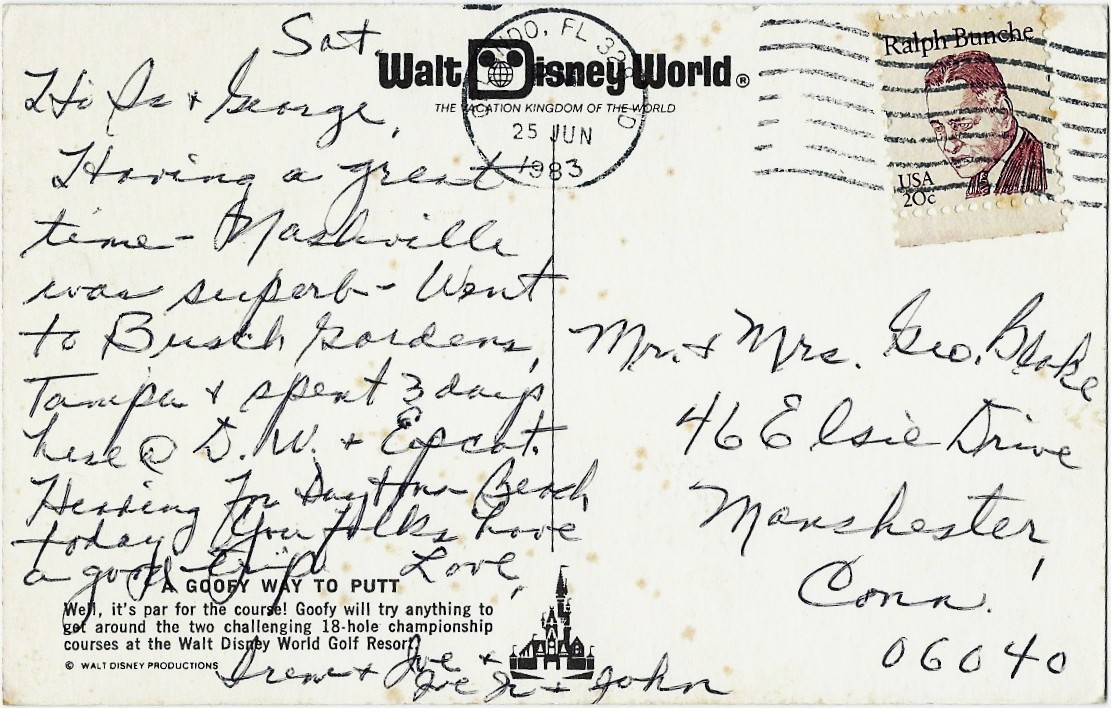 Sat.
Walt Disney World®
THE VACATION KINGDOM OF THE WORLD
FL 32
25 JUN
1983
Ralph Bunche
USA
20c
Hi & George,
Having a great
time - Nashville
was superb - Went
to Busch Gardens,
Tampa & spent 3 days
here @ D.W. & Epcot.
Heading for Daytona Beach
today. You folks have
a good trip. Love,
Irene & Joe &
Joe Jr. & John
Mr. & Mrs. Geo. Blake
46 Elsie Drive
Manchester,
Conn.
06040
A GOOFY WAY TO PUTT
Well, it's par for the course! Goofy will try anything to
get around the two challenging 18-hole championship
courses at the Walt Disney World Golf Resort.
© WALT DISNEY PRODUCTIONS